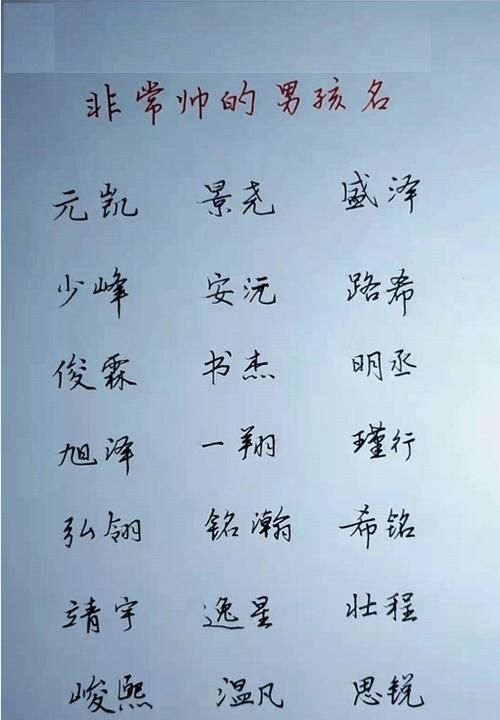 非常帅的男孩名
元凯 景尧 盛泽
少峰 安沅 路希
俊霖 书杰 明丞
旭泽 一翔 瑾行
弘翎 铭瀚 希铭
靖宇 逸星 壮程
峻熙 温凡 思锐